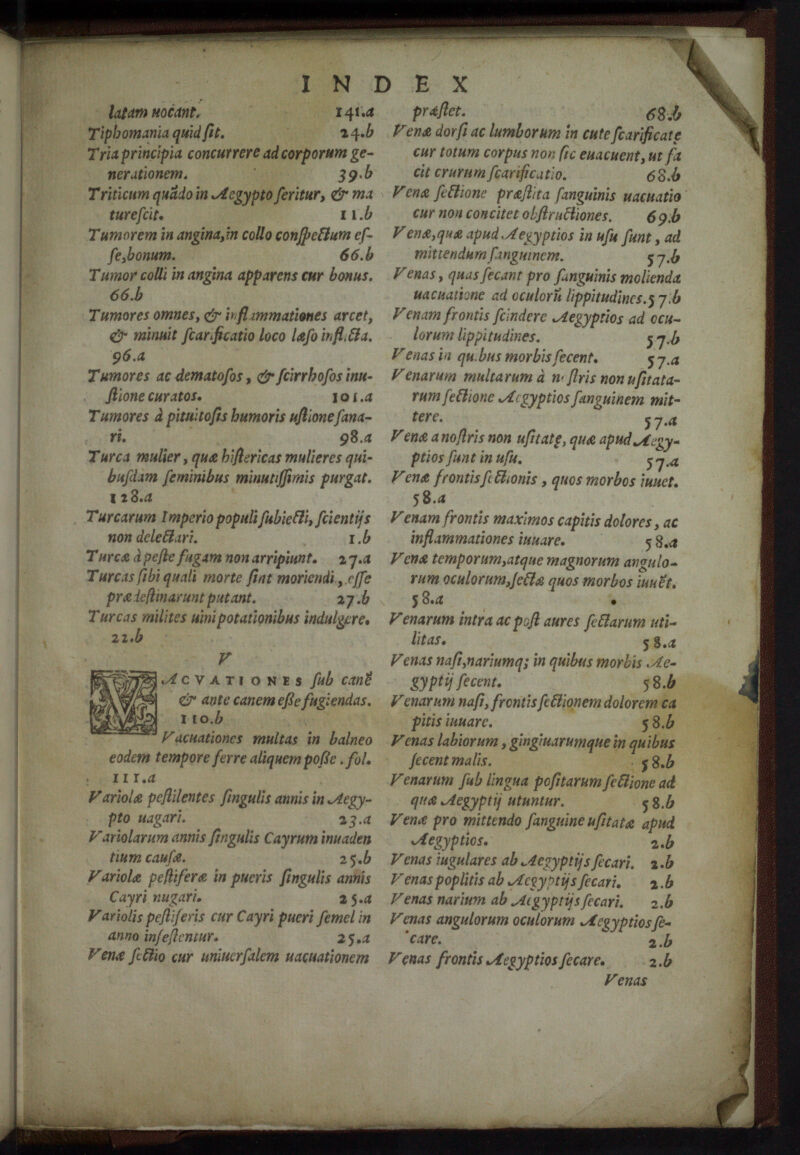 INDEX
latam nocant. 141.a
Tiphomania quid sit. 24.b
Tria principia concurrere ad corporum ge-
nerationem. 39.b
Triticum quãdo in Aegypto seritur, & ma
turescit. 11.b
Tumorem in angina, in collo conspectum es-
se, bonum. 66.b
Tumor colli in angina apparens cur bonus.
66.b
Tumores omnes, & inflammationes arcet,
& minuit scarificatio loco læso inflicta.
96.a
Tumores ac dematosos, & scirrhosos inu-
stione curatos. 101.a
Tumores à pituitosis humoris ustione sana-
ri. 98.a
Turca mulier, quæ histericas mulieres qui-
busdam seminibus minutissimis purgat.
128.a
Turcarum Imperio populi subiecti, scientijs
non delectari. 1.b
Turcæ à peste fugam non arripiunt. 27.a
Turcas sibi quali morte sint moriendi, esse
prædestinarunt putant. 27.b
Turcas milites uini potationibus indulgere.
22.b
V
VACVATIONES sub canẽ
& ante canem esse fugiendas.
110.b
Vacuationes multas in balneo
eodem tempore ferre aliquem posse. fol.
111.a
Variolæ pestilentes singulis annis in Aegy-
pto uagari. 23.a
Variolarum annis singulis Cayrum inuaden
tium causæ. 25.b
Variolæ pestiferæ in pueris singulis annis
Cayri nugari. 25.a
Variolis pestiferis cur Cayri pueri semel in
anno infestentur. 25.a
Venæ sectio cur uniuersalem uacuationem
præstet. 68.b
Venæ dorsi ac lumborum in cute scarificatę
cur totum corpus non sic euacuent, ut fa
cit crurum scarificatio. 68.b
Venæ sectione præstita sanguinis uacuatio
cur non concitet obstructiones. 69.b
Venæ, quæ apud Aegyptios in usu sunt, ad
mittendum sanguinem. 57.b
Venas, quas secant pro sanguinis molienda
uacuatione ad oculorũ lippitudines. 57.b
Venam frontis scindere Aegyptios ad ocu-
lorum lippitudines. 57.b
Venas in quibus morbis secent. 57.a
Venarum multarum à nostris non usitata-
rum sectione Aegyptios sanguinem mit-
tere. 57.a
Venæ a nostris non usitatę, quæ apud Aegy-
ptios sunt in usu. 57.a
Venæ frontis sectionis, quos morbos iuuet.
58.a
Venam frontis maximos capitis dolores, ac
inflammationes iuuare. 58.a
Venæ temporum, atque magnorum angulo-
rum oculorum, secta quos morbos iuuet.
58.a
Venarum intra ac post aures sectarum uti-
litas. 58.a
Venas nasi, nariumq; in quibus morbis Ae-
gyptij secent. 58.b
Venarum nasi, frontis sectionem dolorem ca
pitis iuuare. 58.b
Venas labiorum, gingiuarumque in quibus
secent malis. 58.b
Venarum sub lingua positarum sectione ad
quæ Aegyptij utuntur. 58.b
Venæ pro mittendo sanguine usitatæ apud
Aegyptios. 2.b
Venas iugulares ab Aegyptijs secari. 2.b
Venas poplitis ab Aegyptijs secari. 2.b
Venas narium ab Aegyptijs secari. 2.b
Venas angulorum oculorum Aegyptios se-
care. 2.b
Venas frontis Aegyptios secare. 2.b
Venas